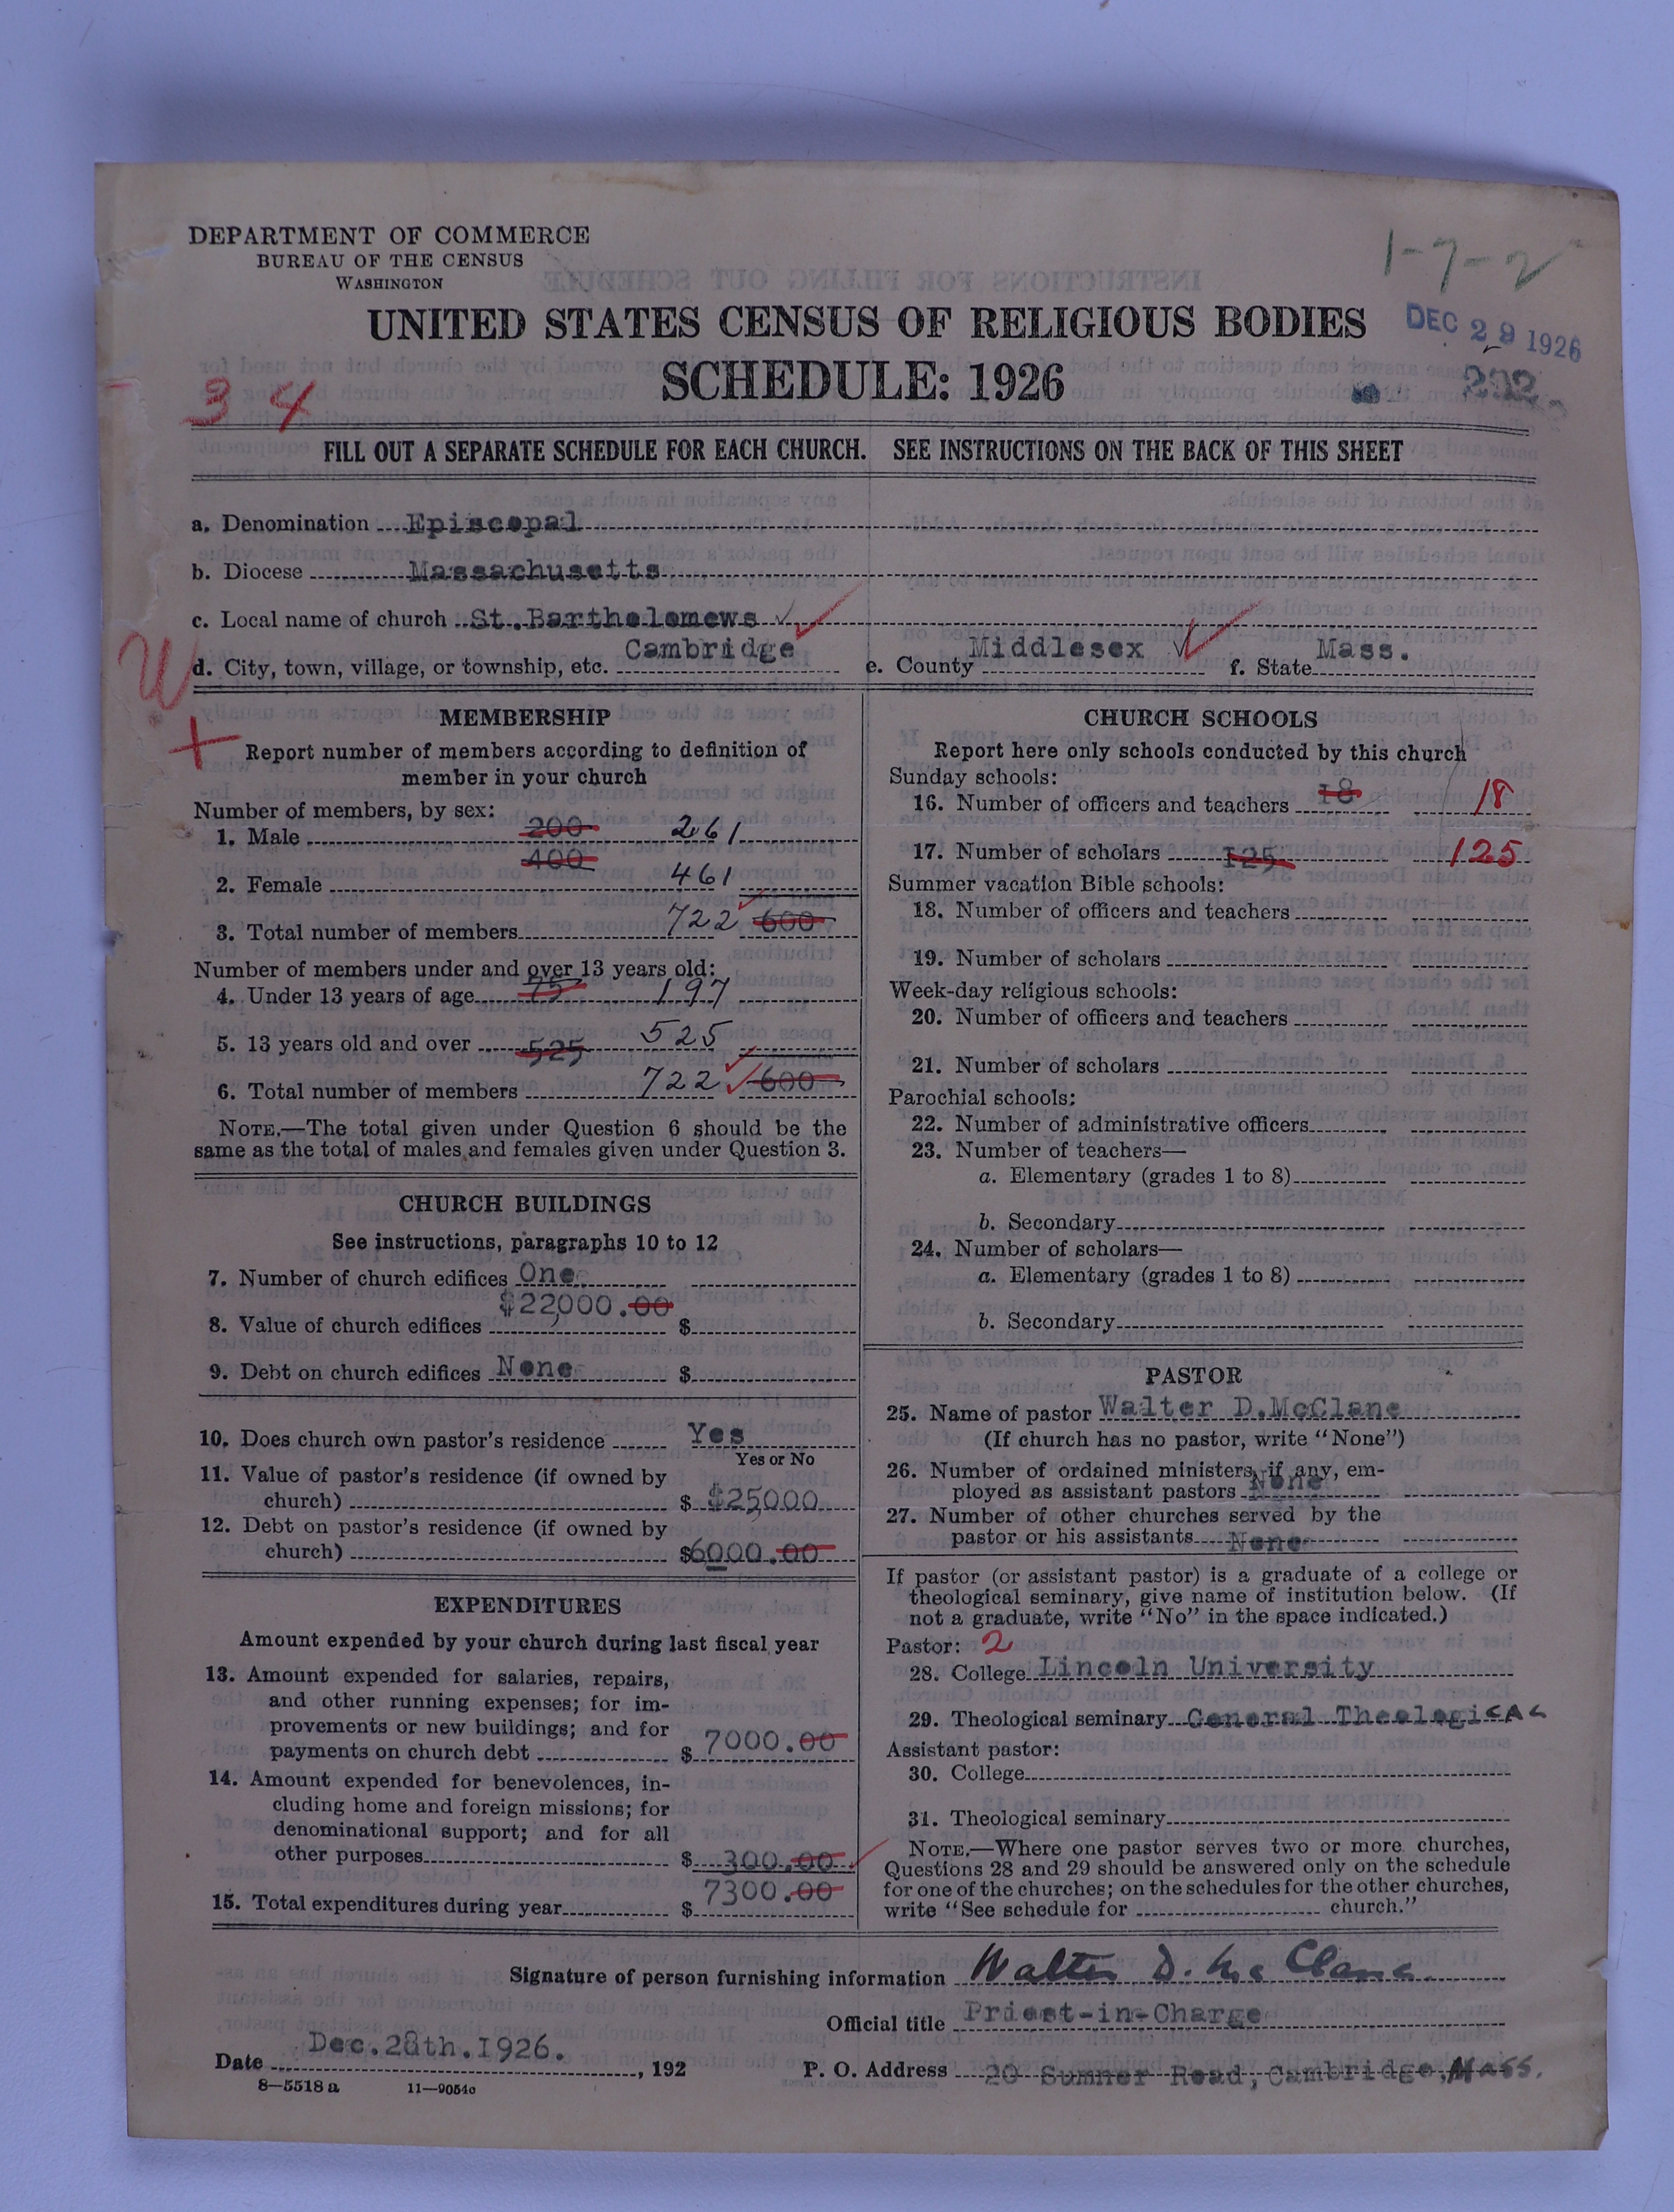 DEPARTMENT OF COMMERCE
BUREAU OF THE CENSUS
WASHINGTON
1-7-2
UNITED STATES CENSUS OF RELIGIOUS BODIES
DEC 29 1926
SCHEDULE: 1926
34
FILL OUT A SEPARATE SCHEDULE FOR EACH CHURCH. SEE INSTRUCTIONS ON THE BACK OF THIS SHEET
a. Denomination Episcopal
b. Diocese Massachusetts
c. Local name of church St. Barthelomews
W
d. City, town, village, or township, etc. Cambridge e. County Middlesex f. State Mass.
MEMBERSHIP
Report number of members according to definition of
member in your church
Number of members, by sex:
1. Male 200 261
2. Female 400 461
3. Total number of members 722 600
Number of members under and over 13 years old:
4. Under 13 years of age 75 197
5. 13 years old and over 525 525
6. Total number of members 722 600
NOTE.—The total given under Question 6 should be the
same as the total of males and females given under Question 3.
CHURCH BUILDINGS
See instructions, paragraphs 10 to 12
7. Number of church edifices One
8. Value of church edifices $22,000.00 $
9. Debt on church edifices None $
10. Does church own pastor's residence Yes
Yes or No
11. Value of pastor's residence (if owned by
church) $ $25,000
12. Debt on pastor's residence (if owned by
church) $6000.00
EXPENDITURES
Amount expended by your church during last fiscal year
13. Amount expended for salaries, repairs,
and other running expenses; for im-
provements or new buildings; and for
payments on church debt $ 7000.00
14. Amount expended for benevolences, in-
cluding home and foreign missions; for
denominational support; and for all
other purposes $ 300.00
15. Total expenditures during year $ 7300.00
CHURCH SCHOOLS
Report here only schools conducted by this church
Sunday schools:
16. Number of officers and teachers 18 18
17. Number of scholars 125 125
Summer vacation Bible schools:
18. Number of officers and teachers
19. Number of scholars
Week-day religious schools:
20. Number of officers and teachers
21. Number of scholars
Parochial schools:
22. Number of administrative officers
23. Number of teachers—
a. Elementary (grades 1 to 8)
b. Secondary
24. Number of scholars—
a. Elementary (grades 1 to 8)
b. Secondary
PASTOR
25. Name of pastor Walter D.McClane
(If church has no pastor, write "None")
26. Number of ordained ministers, if any, em-
ployed as assistant pastors None
27. Number of other churches served by the
pastor or his assistants None
If pastor (or assistant pastor) is a graduate of a college or
theological seminary, give name of institution below. (If
not a graduate, write "No" in the space indicated.)
Pastor: 2
28. College Lincoln University
29. Theological seminary General Theological
Assistant pastor:
30. College
31. Theological seminary
NOTE.—Where one pastor serves two or more churches,
Questions 28 and 29 should be answered only on the schedule
for one of the churches; on the schedules for the other churches,
write "See schedule for church."
Signature of person furnishing information Walter D. McClane
Official title Priest-in-Charge
Date Dec.28th.1926. , 192
P. O. Address 20 Sumner Road, Cambridge, Mass.
8—5518 a 11—9054c